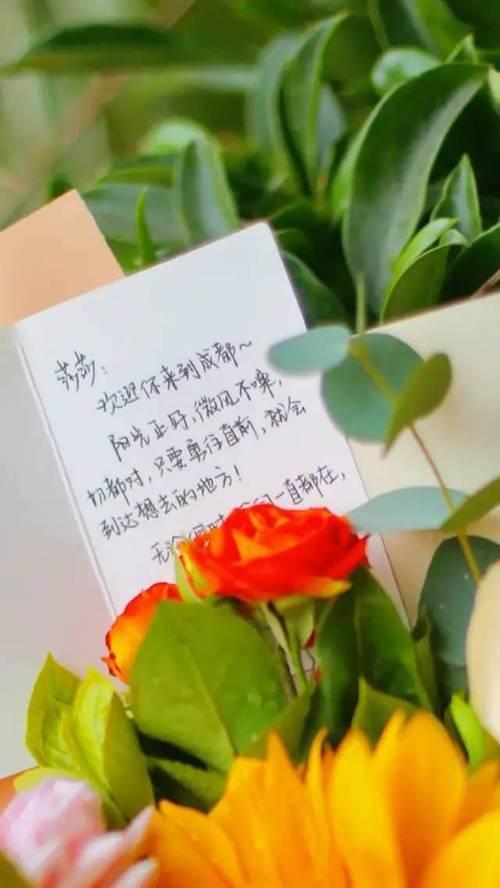 莎莎:
欢迎你来到成都~
阳光正好,微风不噪,
切都对,只要勇往直前,就会
到达想去的地方!
无论何时 我们一直都在,